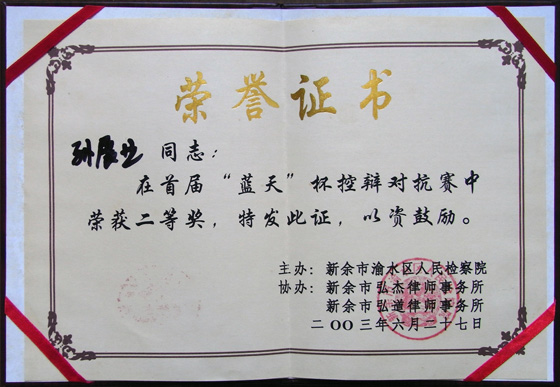 荣誉证书
孙展业 同志：
在首届“蓝天”杯控辩对抗赛中
荣获二等奖，特发此证，以资鼓励。
主办：新余市渝水区人民检察院
协办：新余市弘杰律师事务所
新余市弘道律师事务所
二OO三年六月二十七日